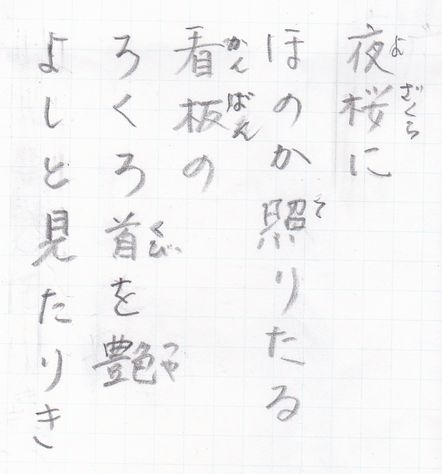 夜桜に
ほのか照りたる
看板の
ろくろ首を艶
よしと見たりき
よ
ざくら
て
かん
ばん
くび
つや